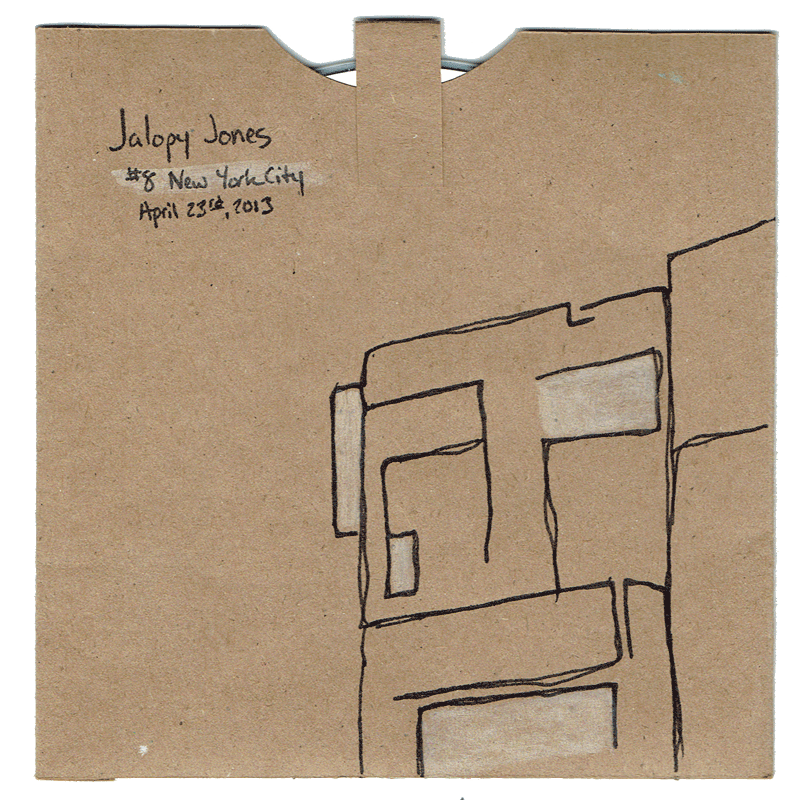 Jalopy Jones
#8 New York City
April 23rd, 2013